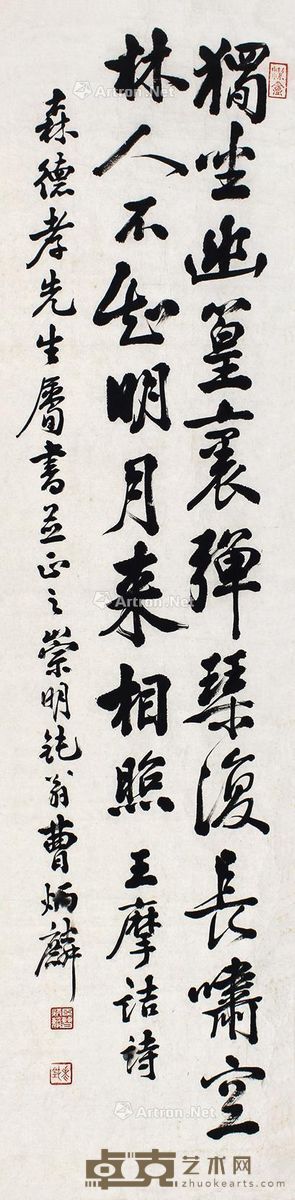 獨坐幽篁裏彈琴復長嘯空
林人不知明月來相照 王摩詰詩
森德孝先生屬書並正之崇明鈍翁曹炳麟
Artron.Net
Artron.Net
Artron.Net
Artron.Net
卓克艺术网
http://www.zhuokearts.com